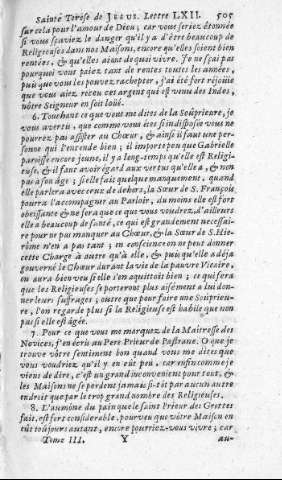 Sainte Terese de JESUS. Lettre LXII. 505
sur cela pour l'amour de Dieu, car vous seriez étonnée
si vous sçaviez le danger qu'il y a d'être beaucoup de
Religieuses dans nos Maisons, encore qu'elles soient bien
rentées, & qu'elles aient de quoi vivre. Je ne sçai pas
pourquoi vous païez tant de rentes toutes les années,
puis que vous les pouvez racheter, j'ai été fort réjoüie
que vous aiez receu cet argent qui est venu des Indes,
nôtre Seigneur en soit loüé.
6. Touchant ce que vous me dites de la Soûprieure, je
vous avertis, que comme vous êtes si indisposée vous ne
pourrez pas assister au Chœur, & ainsi il faut une per-
sonne qui l'entende bien ; il importe peu que Gabrielle
paroisse encore jeune, il y a long-temps qu'elle est Religi-
euse, & il faut avoir égard aux vertus qu'elle a, & non
pas à son âge ; si elle fait quelque manquement, quand
elle parlera avec ceux de dehors, la Sœur de S. François
pourra l'accompagner au Parloir, du moins elle est fort
obeïssante & ne fera que ce que vous voudrez, d'ailleurs
elle a beaucoup de santé, ce qui est grandement necessai-
re pour ne pas manquer au Chœur, & la Sœur de S. Hie-
rôme n'en a pas tant ; en conscience on ne peut donner
cette Charge à autre qu'à elle, & puis qu'elle a déja
gouverné le Chœur durant la vie de la pauvre Vicaire,
on aura bien veu si elle s'en aquittoit bien ; ce qui fera
que les Religieuses se porteront plus aisément a lui don-
ner leurs suffrages ; outre que pour faire une Soûprieu-
re, l'on regarde plus si la Religieuse est habile que non
pas si elle est âgée.
7. Pour ce que vous me marquez de la Maitresse des
Novices, j'en écris au Pere Prieur de Pastrane. O que je
trouve vôtre sentiment bon quand vous me dites que
vous voudriez qu'il y en eût peu, car enfin comme je
viens de dire, c'est un grand inconvenient pour tout, &
les Maisons ne se perdent jamais si-tôt par aucun autre
endroit que par le trop grand nombre des Religieuses.
8. L'aumône du pain que le saint Prieur des Grottes
fait, est fort considerable, pourveu que vôtre Maison en
eût toûjours autant, encore pourriez-vous vivre ; car
Tome III. Y au-